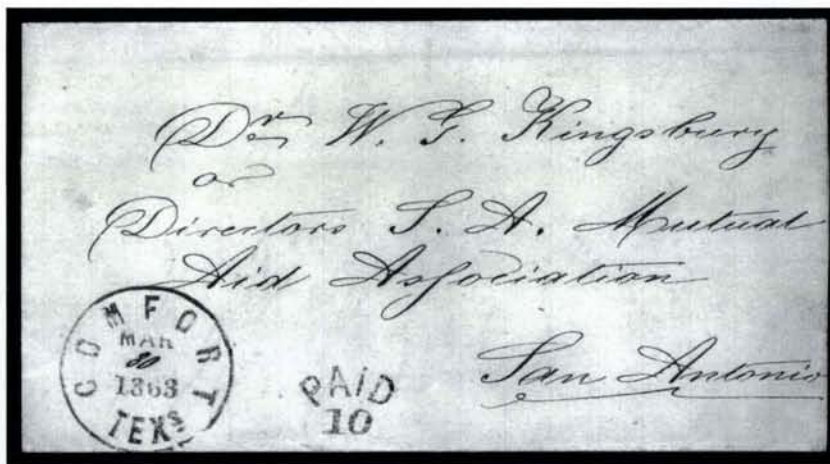 Dr. W. G. Kingsbury
or
Directors S. A. Mutual
Aid Association
San Antonio
COMFORT
MAR
30
1863
TEXS
PAID
10